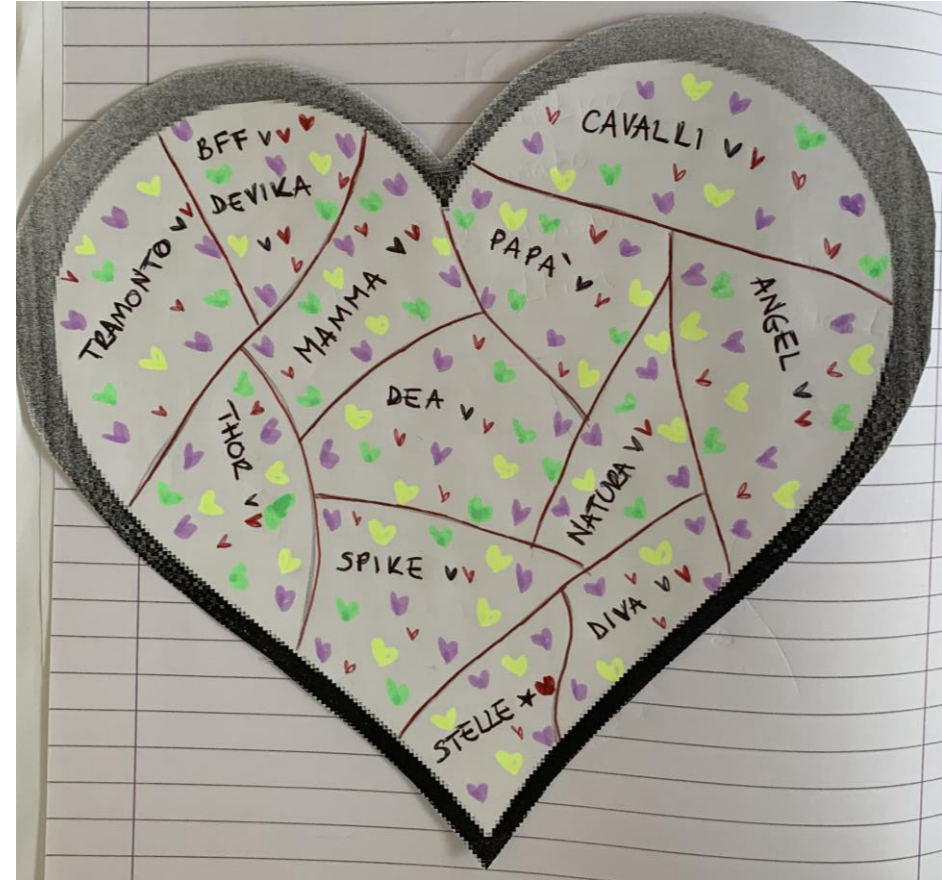 BFF
DEVIKA
CAVALLI
TRAMONTO
MAMMA
PAPA`
ANGEL
THOR
DEA
NATURA
SPIKE
DIVA
STELLE